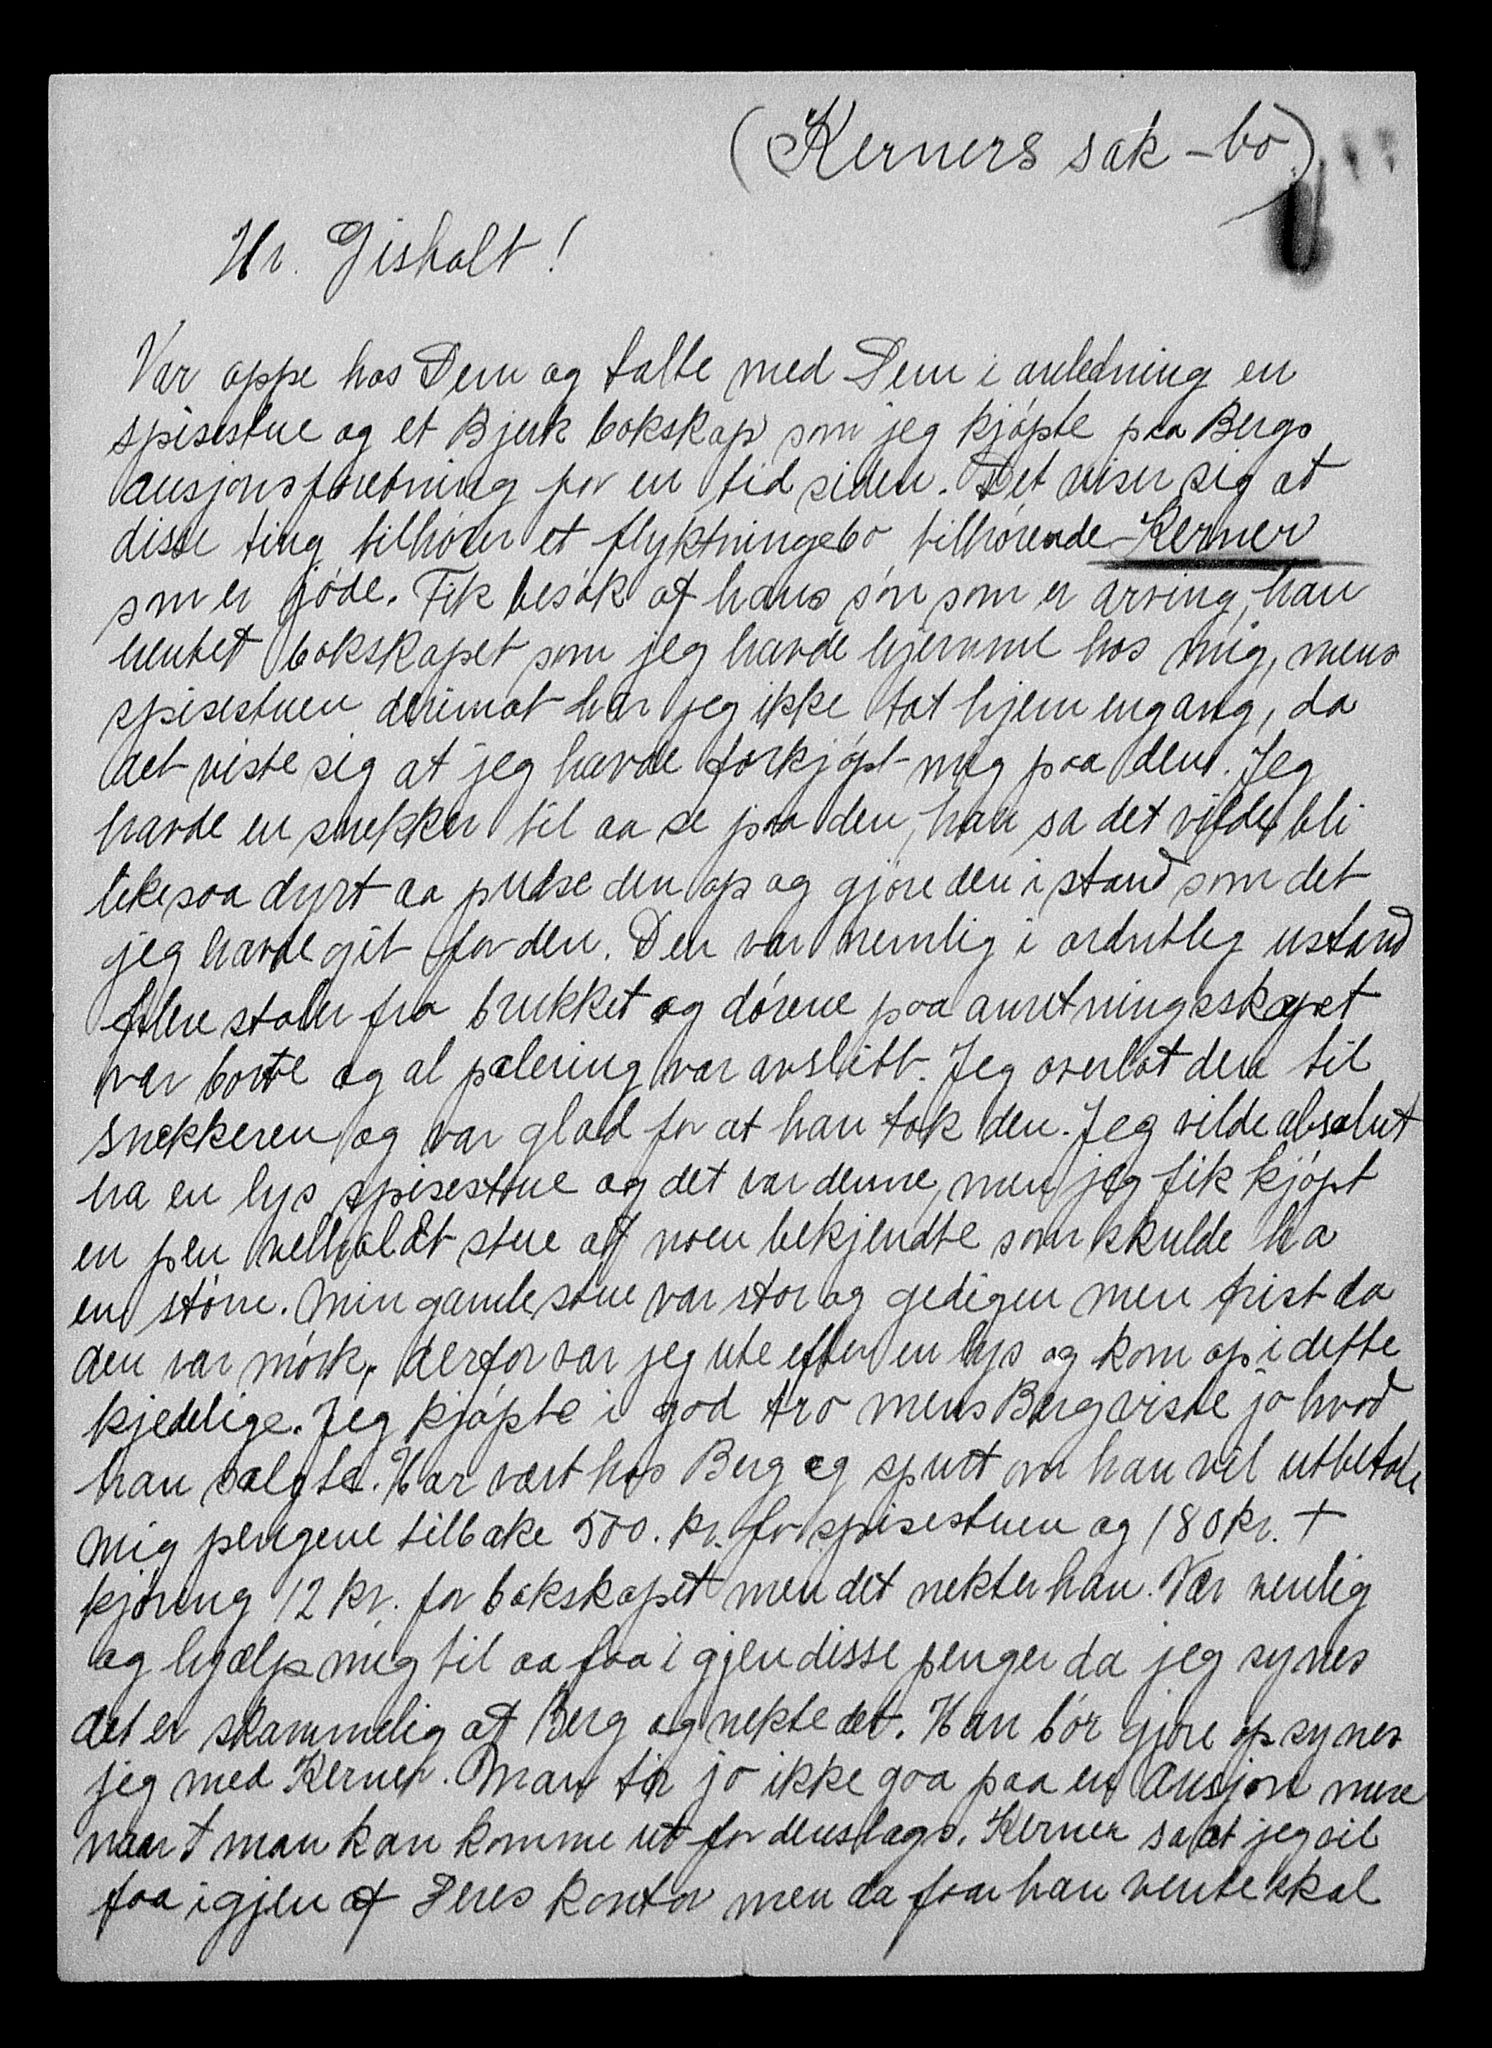 (Kerners sak – bo)
Hr. Gisholt!
Var oppe hos Dem og talte med Dem i anledning en
spisestue og et Bjerk bokskap som jeg kjøpte paa Bergs
ausjonsforetning for en tid siden. Det viser sig at
disse ting tilhører et flyktningebo tilhørende Kerner
som er jøde. Fik besøk af hans søn som er arving, han
hentet bokskapet som jeg havde hjemme hos mig, mens
spisestuen derimot har jeg ikke tat hjem engang, da
det viste sig at jeg havde forkjøpt mig paa den. Jeg
havde en snekker til aa se paa den, han sa det vilde bli
likesaa dyrt aa pudse den op og gjøre den i stand som det
jeg havde git for den. Den var nemlig i ordntlig ustand
flere stoler fra brukket og dørene paa anretningsskapet
var borte og al polering var avslitt. Jeg overlot den til
snekkeren og var glad for at han tok den. Jeg vilde absolut
ha en lys spisestue og det var denne, men jeg fik kjøpt
en pen velholdt stue af noen bekjendte som skulde ha
en større. Min gamle stue var stor og gedigen men trist da
den var mørk, derfor var jeg ute efter en lys og kom op i dette
kjedelige. Jeg kjøpte i god tro mens Berg viste jo hvod
han solgte. Har vært hos Berg og spurt om han vil utbetale
mig pengene tilbake 500. kr. for spisestuen og 180 kr. +
kjøring 12 kr. for bokskapet men det nekter han. Vær venlig
og hjælp mig til aa faa i gjen disse penger da jeg synes
det er skammelig at Berg og nekte det. Han bør gjøre op synes
jeg med Kerner. Man tør jo ikke gaa paa en Ausjon mere
naar man kan komme ut for denslags. Kerner sa at jeg vil
faa igjen af Deres kontor men da faar han vente skal